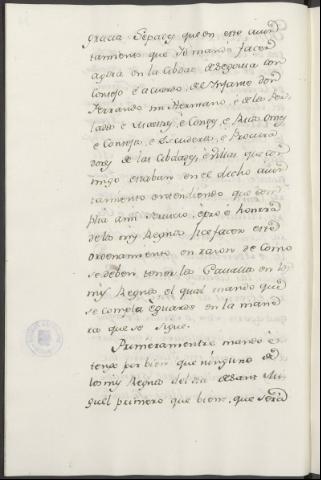 gracia. Sepades que en este aiun-
tamiento que Yo mandé facer
agora en la Cibdat de Segovia con
Consejo é acuerdo del Infante don
Ferrando mi Hermano, é de los Per-
lados é Maestres, é Condes, é Ricos Omes
é Consejo, é é Procura-
dores de las Cibdades, é Villas que con-
migo estaban en el dicho aiun-
tamiento entendiendo que com-
plia á mi servicio, é pro é honrra
de los mis Regnos fice facer este
Ordenamiento en razon de como
se deben tener los Cavallos en los
mis Regnos el qual mando que
se compla é guarde en la mane-
ra que se sigue.
Primeramente mando é
tengo por bien que ninguno de
los mis Regnos del dia de Sant Mi-
guel primero que biene, que será